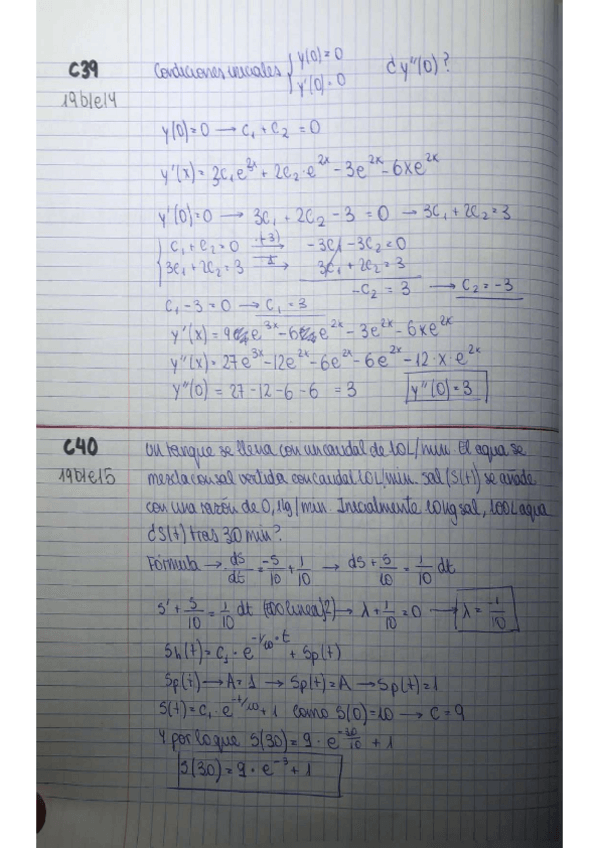 C39
19b1e14
Condiciones iniciales { y(0)=0
y'(0)=0
¿y''(0)?
y(0)=0 → C₁+C₂=0
y'(x)=3C₁e^{3x}+2C₂·e^{2x}-3e^{2x}-6xe^{2x}
y'(0)=0 → 3C₁+2C₂-3=0 → 3C₁+2C₂=3
C₁+C₂=0 ·(-3)→ -3C₁-3C₂=0
3C₁+2C₂=3 ·1→ 3C₁+2C₂=3
-C₂=3 → C₂=-3
C₁-3=0 → C₁=3
y'(x)=9e^{3x}-6e^{2x}-3e^{2x}-6xe^{2x}
y''(x)=27e^{3x}-12e^{2x}-6e^{2x}-6e^{2x}-12·x·e^{2x}
y''(0)=27-12-6-6=3 y''(0)=3
C40
19b1e15
Un tanque se llena con un caudal de 10L/min. El agua se
mezcla con sal vertida con caudal 10L/min. sal (S(t)) se añade
con una razón de 0,1kg/min. Inicialmente 10kg sal, 100L agua
¿S(t) tras 30 min?
Fórmula → dS/dt=-S/10+1/10 → dS+S/10=1/10 dt
S'+S/10=1/10 dt → λ+1/10=0 → λ=-1/10
Sh(t)=C₁·e^{-1/10·t}+Sp(t)
Sp(t)→A=1→Sp(t)=A→Sp(t)=1
S(t)=C₁·e^{-t/10}+1 como S(0)=10 → C=9
Y por lo que S(30)=9·e^{-30/10}+1
S(30)=9·e^{-3}+1